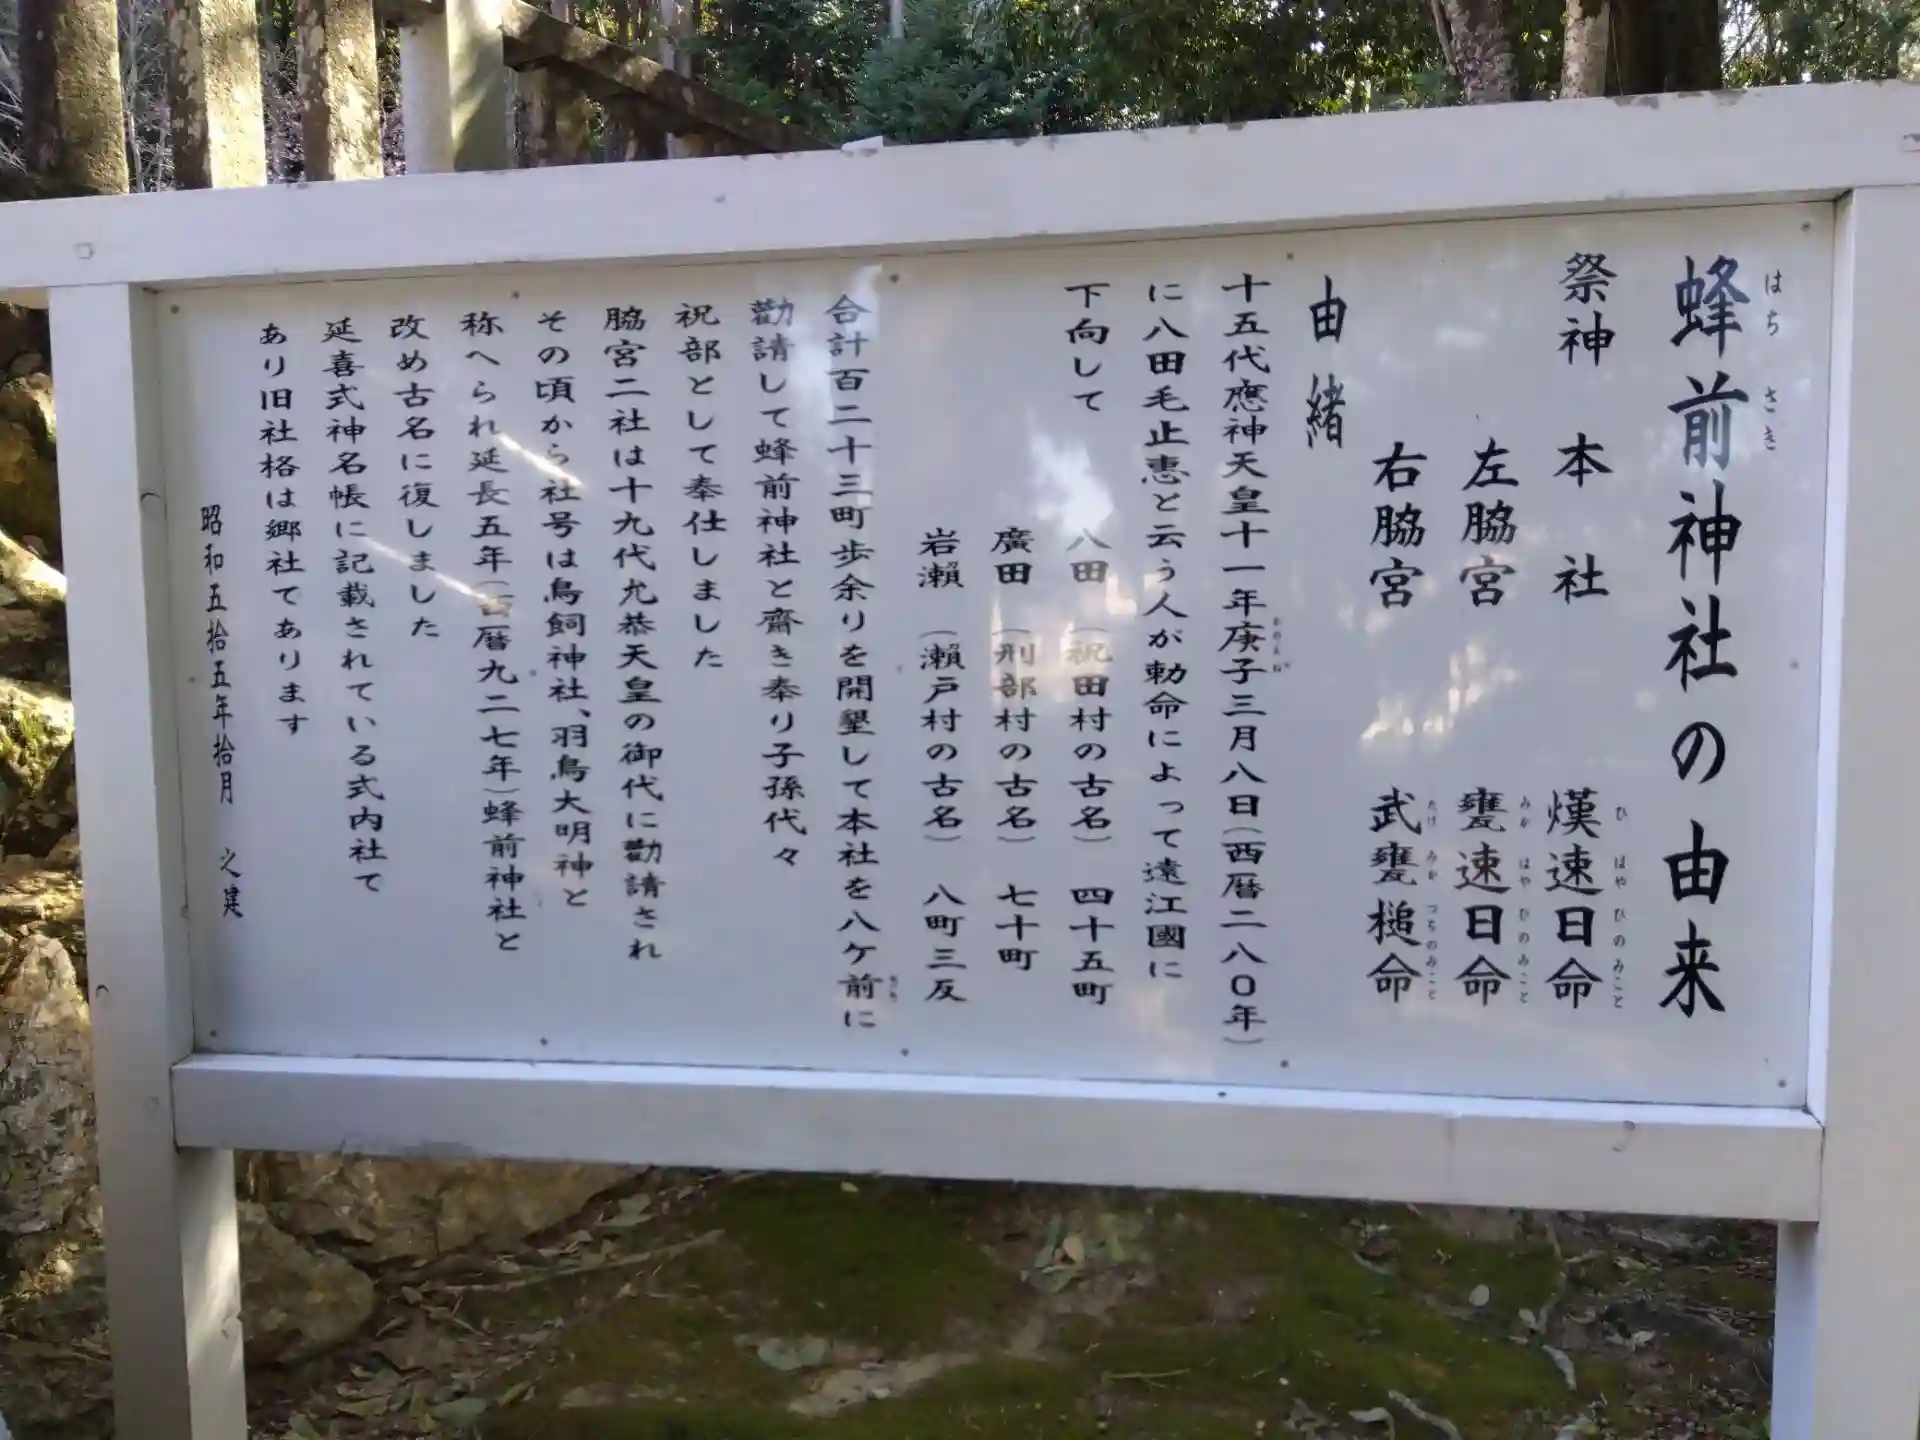 蜂前神社の由来
はち さき
祭神 本社 熯速日命
ひ はや ひ の みこと
左脇宮 甕速日命
みか はや ひ の みこと
右脇宮 武甕槌命
たけ みか つち の みこと
由緒
十五代應神天皇十一年庚子三月八日(西暦二八〇年)
に八田毛止恵と云う人が勅命によって遠江國に
下向して
八田(祝田村の古名) 四十五町
廣田(刑部村の古名) 七十町
岩瀬(瀬戸村の古名) 八町三反
合計百二十三町歩余りを開墾して本社を八ケ前に
勸請して蜂前神社と齋き奉り子孫代々
祝部として奉仕しました
脇宮二社は十九代允恭天皇の御代に勸請され
その頃から社号は鳥飼神社、羽鳥大明神と
称へられ延長五年(西暦九二七年)蜂前神社と
改め古名に復しました
延喜式神名帳に記載されている式内社て
あり旧社格は郷社てあります
昭和五拾五年拾月 之建